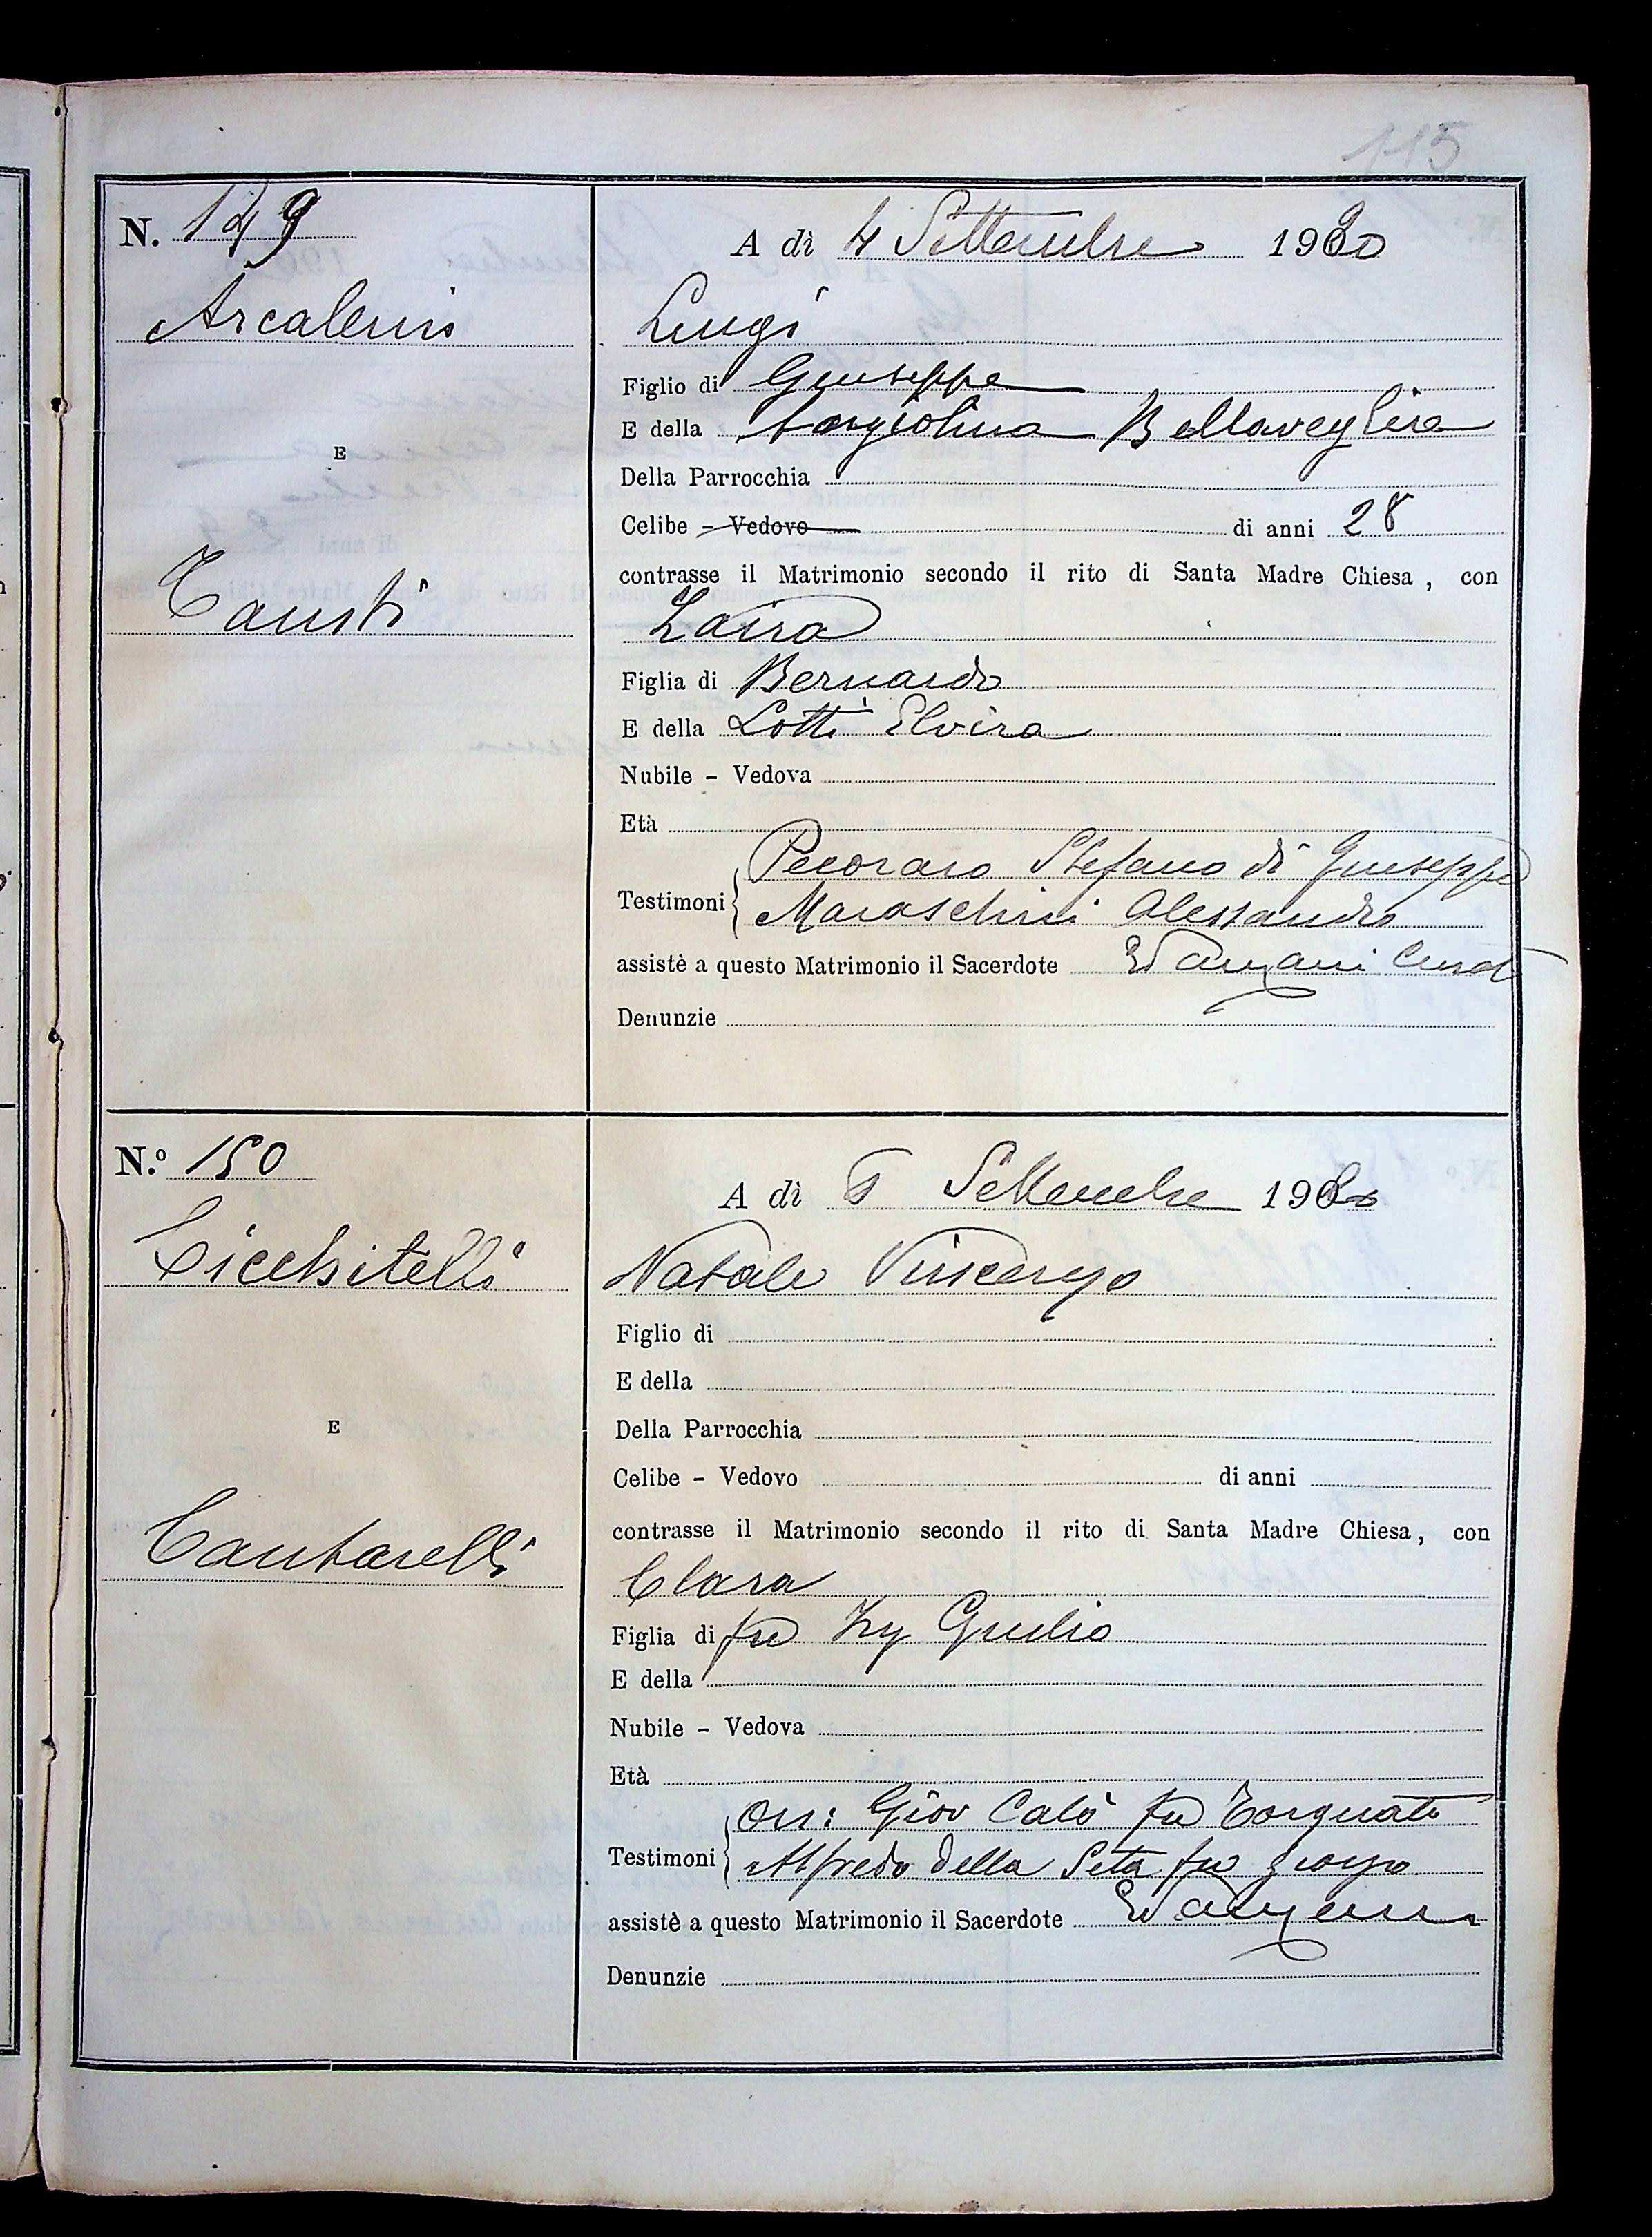 115
N. 149
A dì 4 Settembre 1920
Arcaleni
Luigi
Figlio di Giuseppe
E della Bellaveglia
E
Della Parrocchia
Celibe - Vedovo di anni 28
contrasse il Matrimonio secondo il rito di Santa Madre Chiesa, con
Fausti
Zaira
Figlia di Bernardo
E della Lotti Elvira
Nubile - Vedova
Età
Testimoni
Pecoraro Stefano di Giuseppe
Maraschini Alessandro
assistè a questo Matrimonio il Sacerdote
Denunzie
N.º 150
A dì 5 Settembre 1920
Cicchitelli
Natale Vincenzo
Figlio di
E della
E
Della Parrocchia
Celibe - Vedovo di anni
contrasse il Matrimonio secondo il rito di Santa Madre Chiesa, con
Cantarelli
Clara
Figlia di fu Giulio
E della
Nubile - Vedova
Età
Testimoni
On: Giov Calò fu Torquato
Alfredo della Seta fu
assistè a questo Matrimonio il Sacerdote
Denunzie